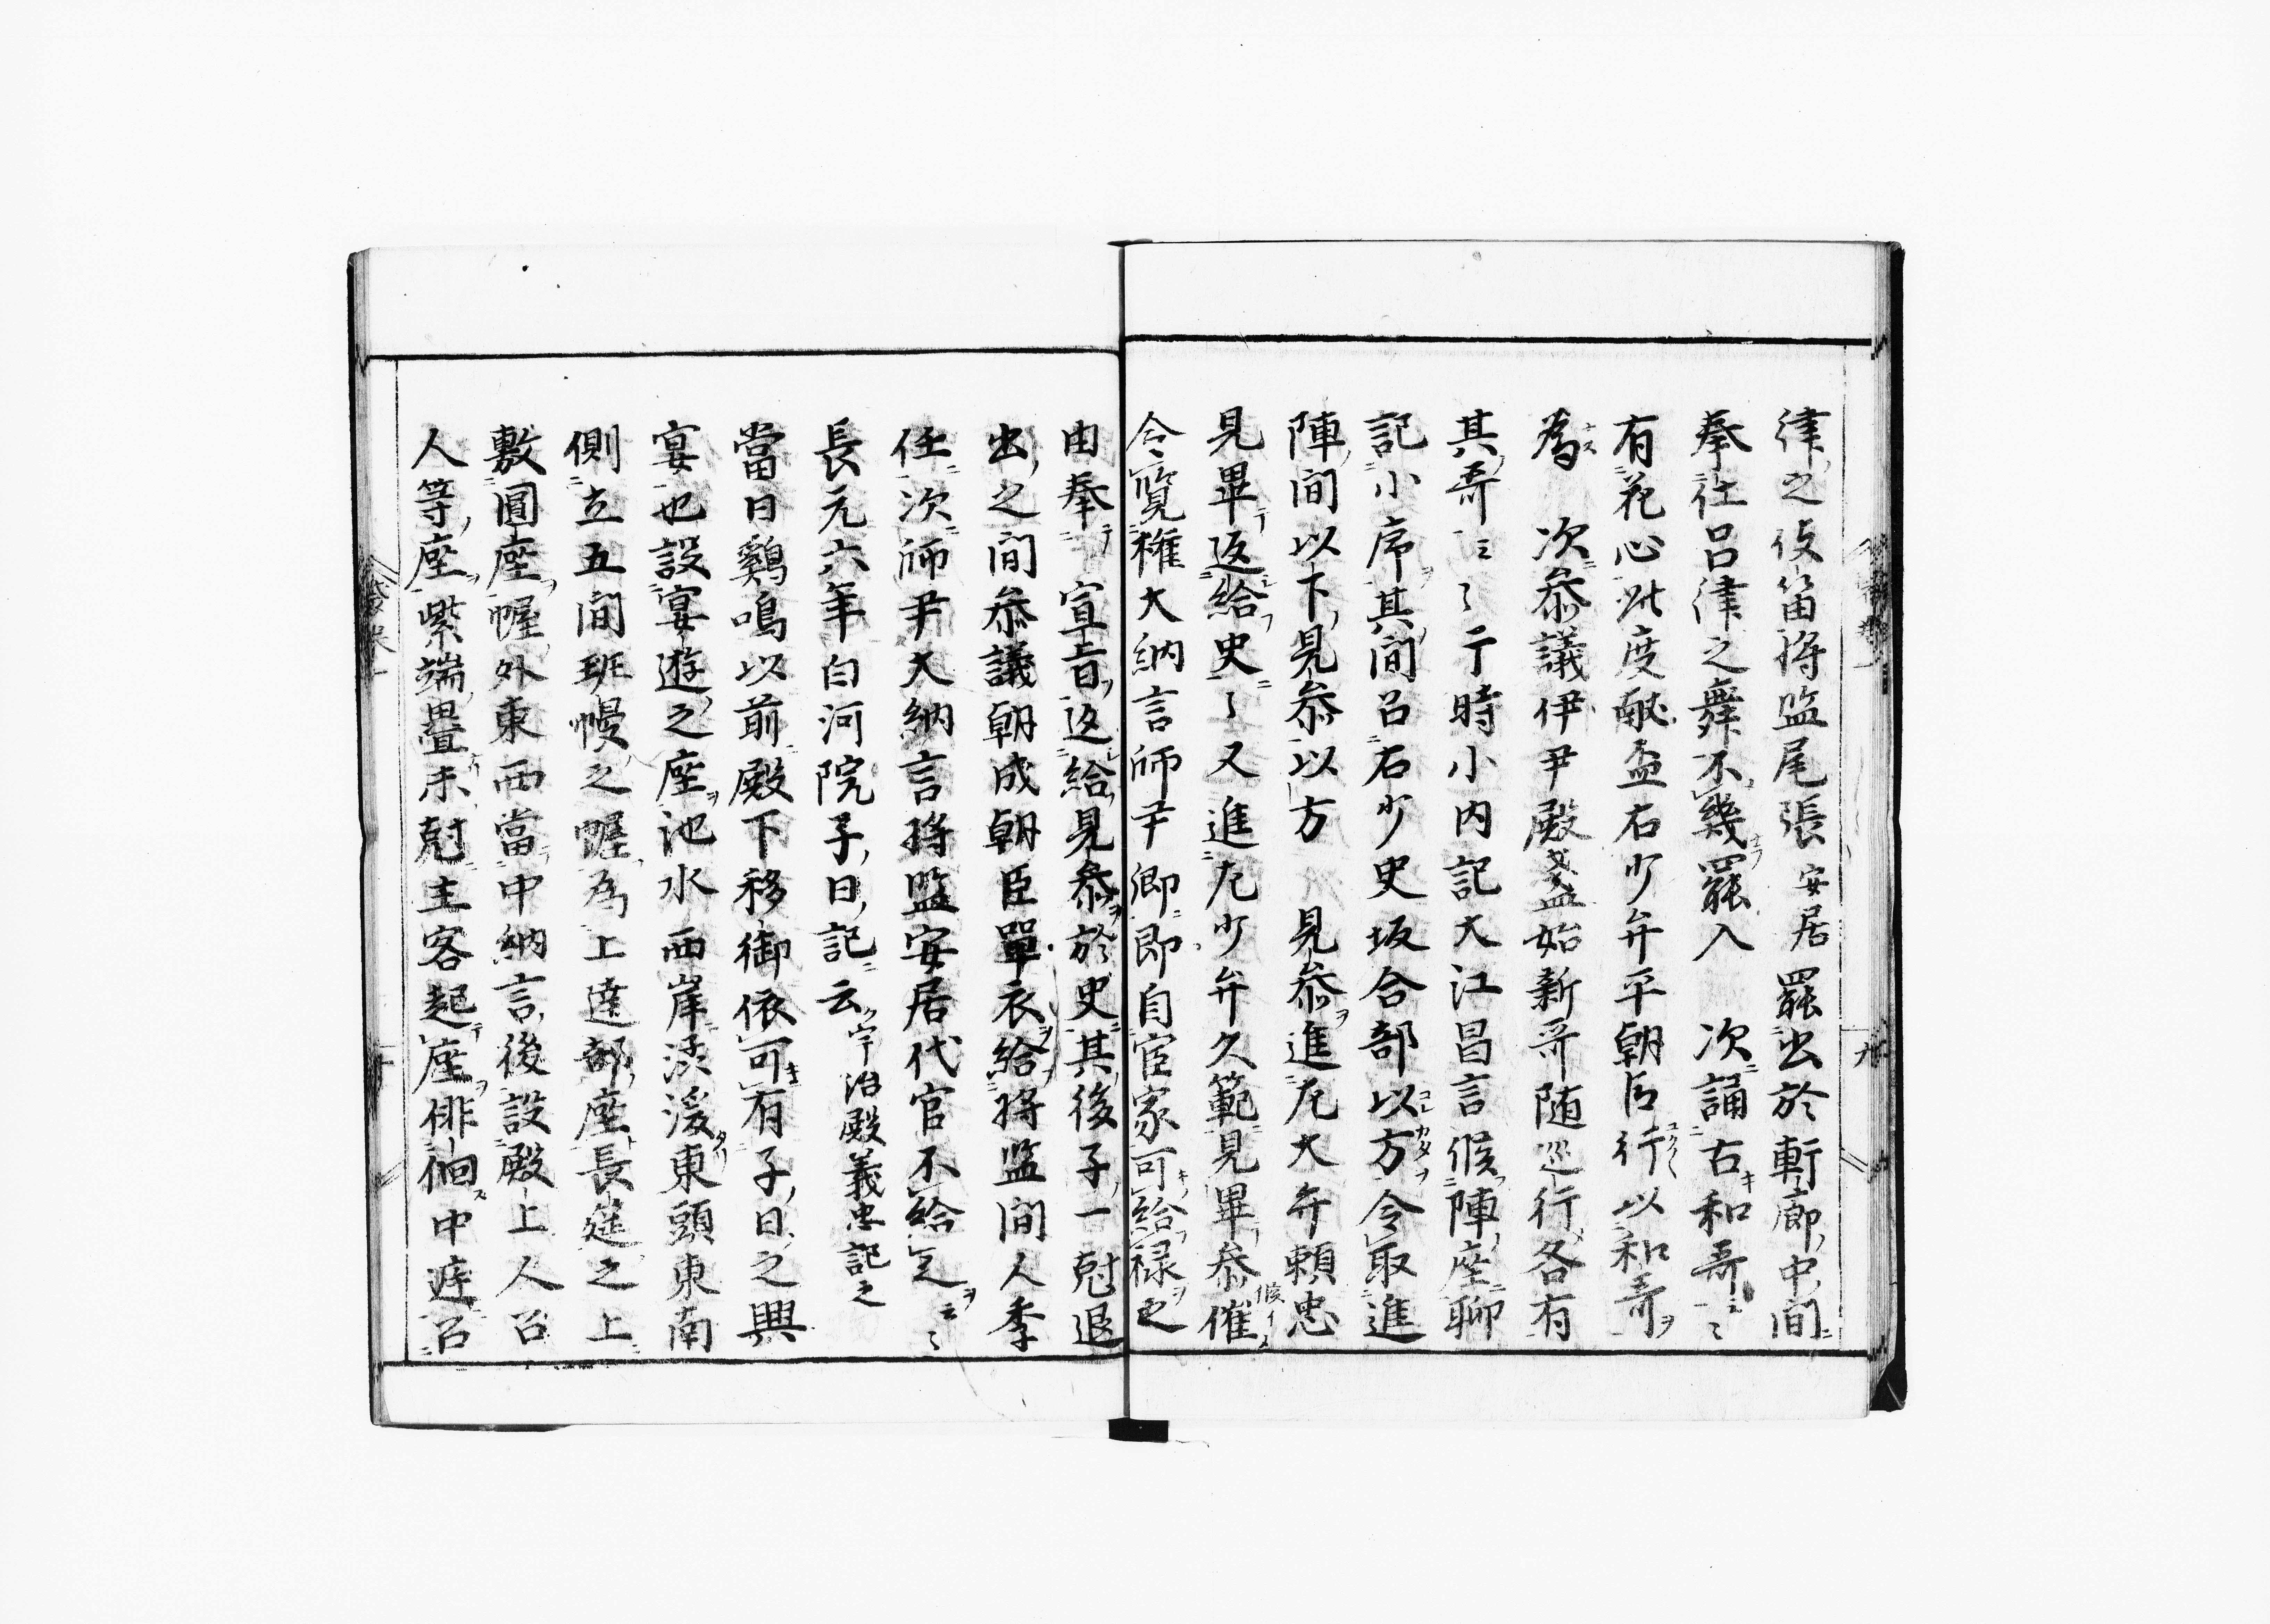 律之伇笛将監尾張安居罷出於軒廊中間
奉仕呂律之舞不幾罷入 次誦古和哥云々
有花心此度献盃右少弁平朝臣行以和哥
為 次叅議伊尹殿盞始新哥随巡行各有
其哥云々于時小内記大江昌言候陣座聊
記小序其間召右少史坂合部以方令取進
陣間以下見叅以方 見叅進左大弁頼忠
見畢返給史々又進左少弁久範見畢叅催
令覧権大納言師尹卿即自宦家可給禄之
由奉 宣旨返給見叅於史其後子一尅退
出之間叅議朝成朝臣單衣給将監間人季
任次師尹大納言将監安居代官不給之云々
長元六年白河院子日記云宇治殿義忠記之
當日鷄鳴以前殿下移御依可有子日之興
宴也設宴遊之座池水西岸湲東頭東南
側立五間班幔之幄為上達部座長莚之上
敷圓座幄外東西當中納言後設殿上人召
人等座紫端疊未尅主客起座俳徊中庭召